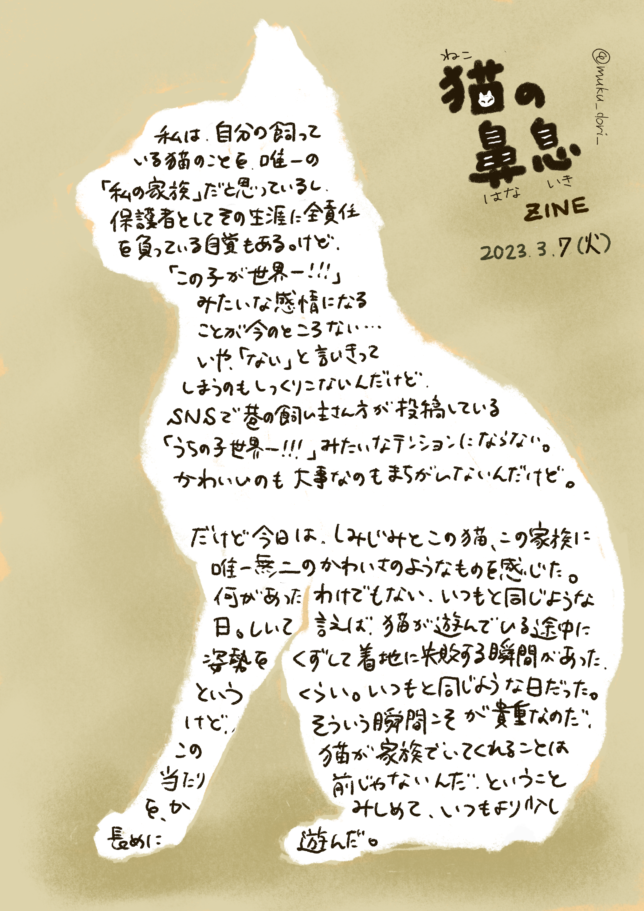 @muku_dori_
ねこ
猫の
鼻息
はな いき
ZINE
2023.3.7(火)
私は、自分の飼って
いる猫のことを、唯一の
「私の家族」だと思っているし、
保護者としてその生涯に全責任
を負っている自覚もある。けど、
「この子が世界一!!!」
みたいな感情になる
ことが今のところない…
いや、「ない」と言いきって
しまうのもしっくりこないんだけど、
SNSで巷の飼い主さん方が投稿している
「うちの子世界一!!!」みたいなテンションにならない。
かわいいのも大事なのもまちがいないんだけど。
だけど今日は、しみじみとこの猫、この家族に
唯一無二のかわいさのようなものを感じた。
何があったわけでもない、いつもと同じような
日。しいて言えば、猫が遊んでいる途中に
姿勢をくずして着地に失敗する瞬間があった、
というくらい。いつもと同じような日だった。
けど、そういう瞬間こそが貴重なのだ、
この猫が家族でいてくれることは
当たり前じゃないんだ、ということ
を、かみしめて、いつもより少し
長めに遊んだ。